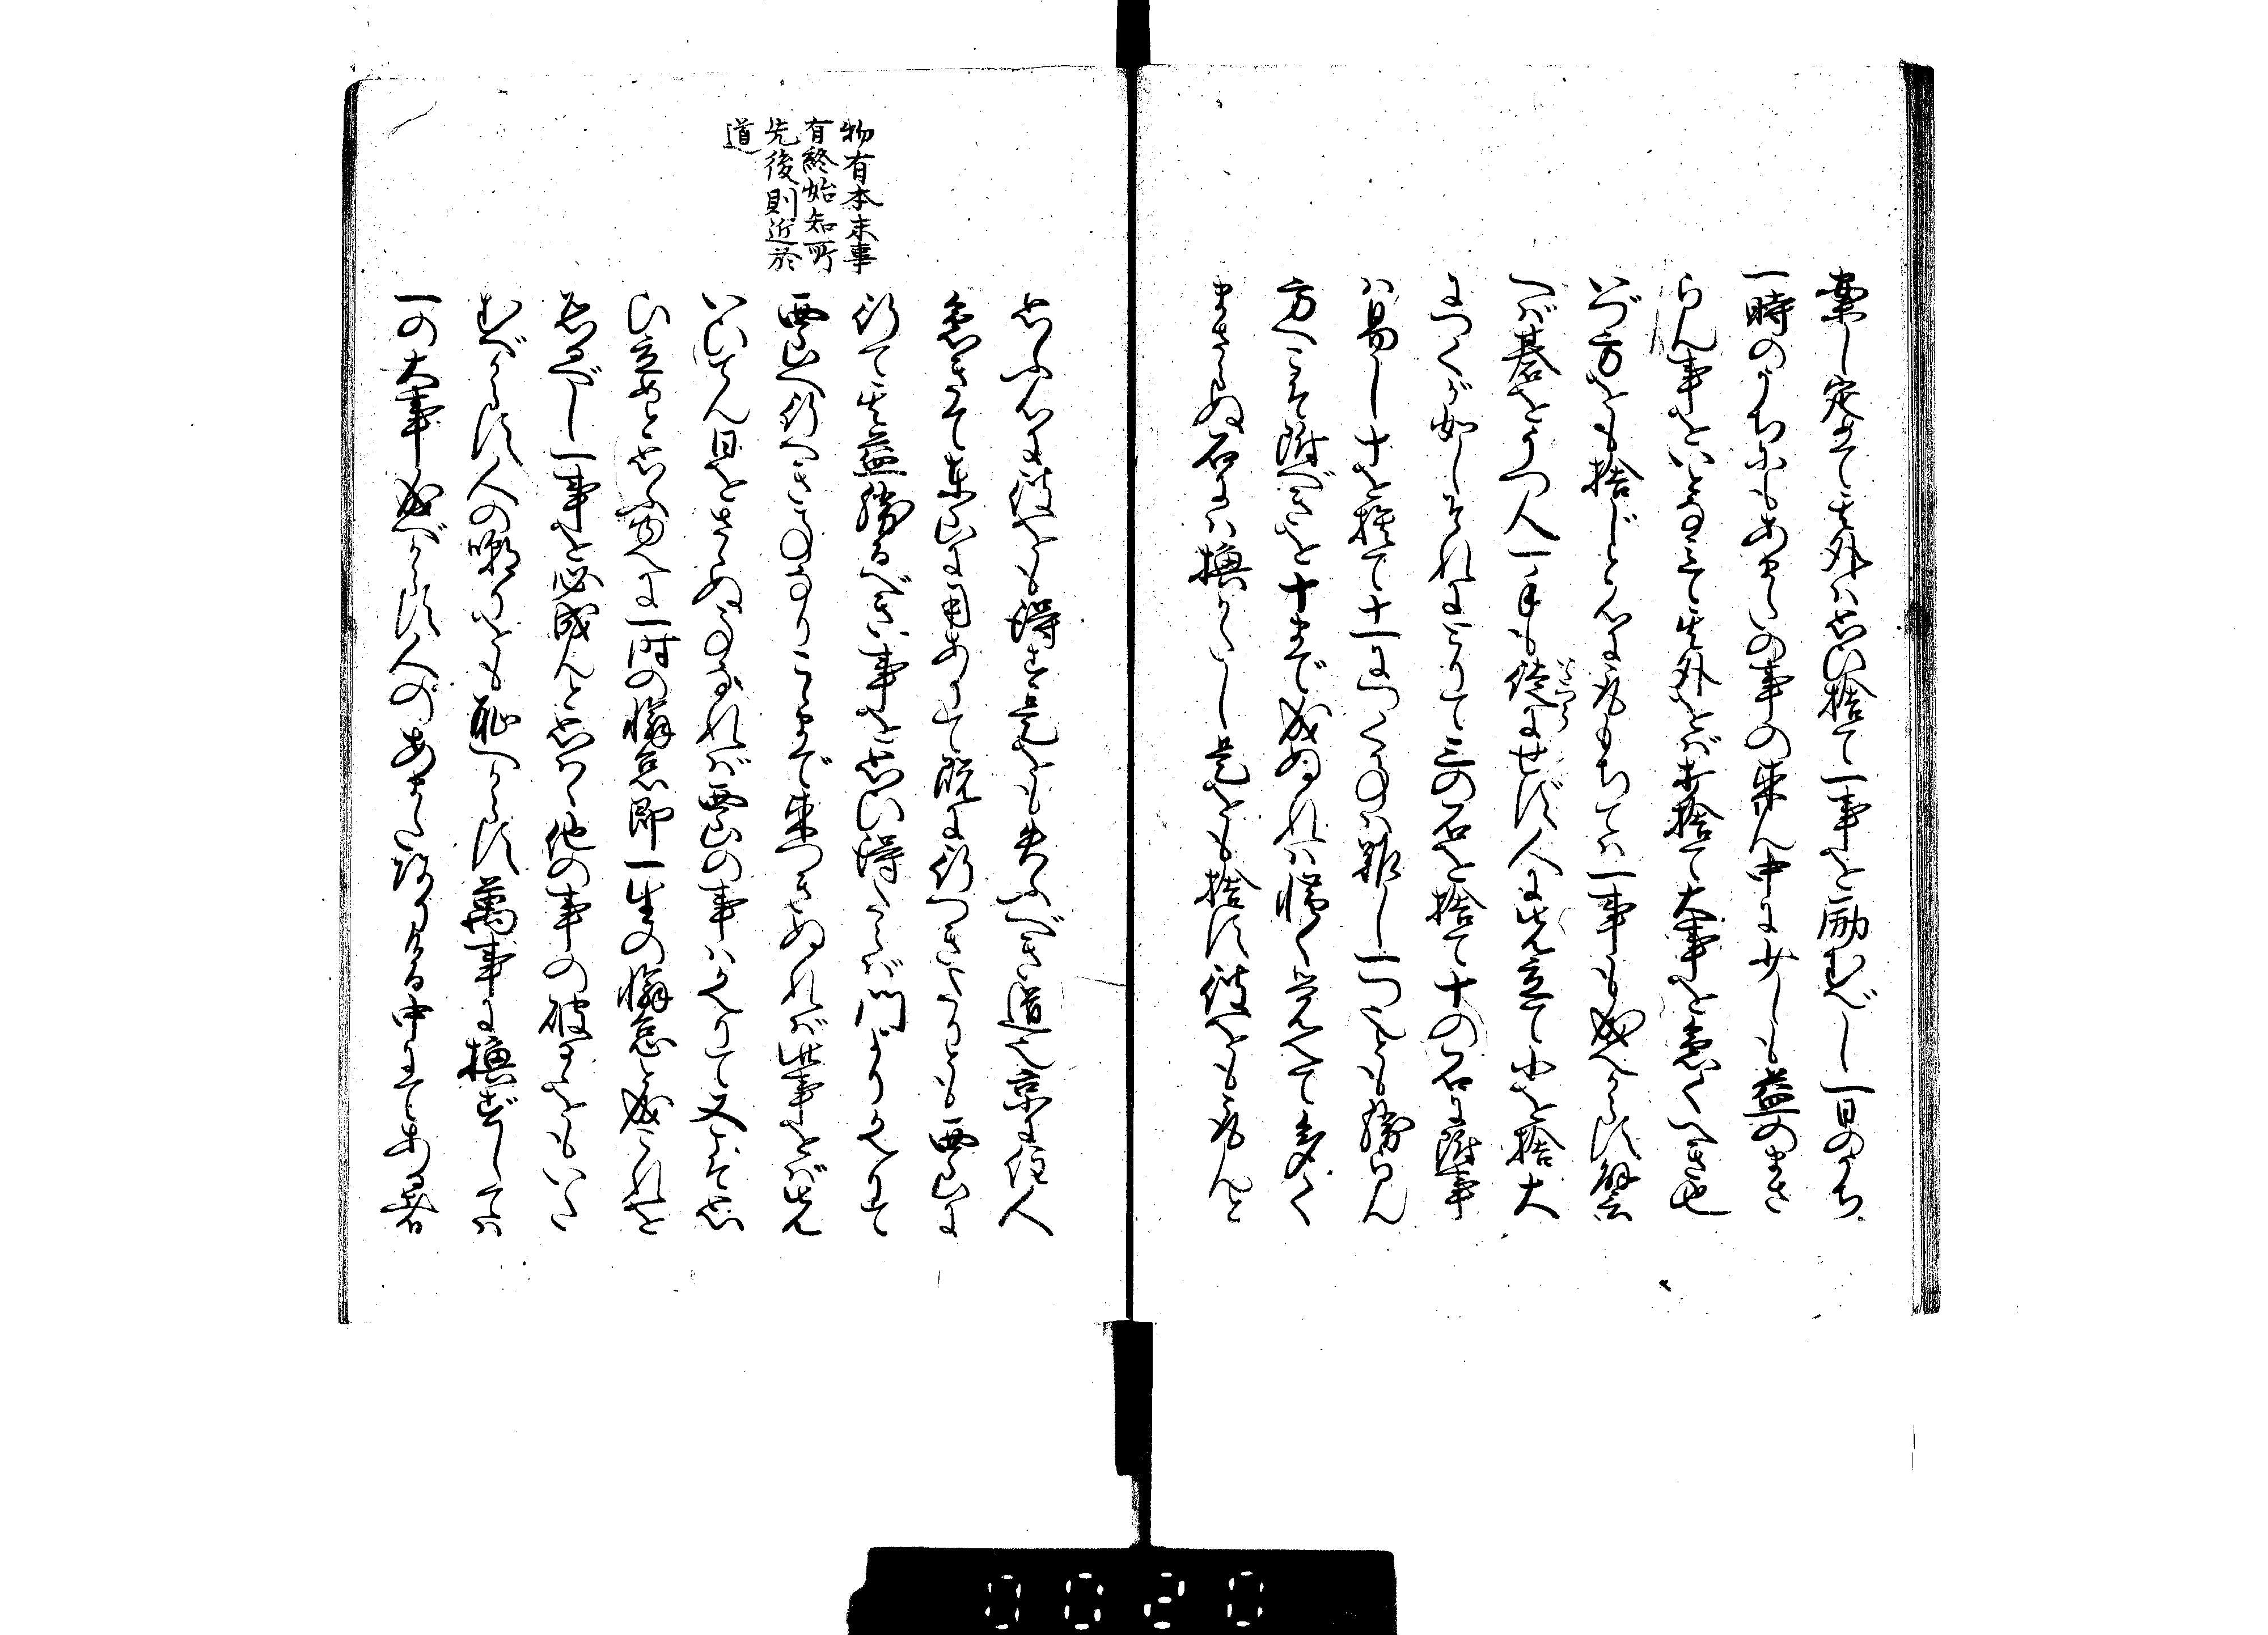 案じ定めて其外は思ひ捨て一事を励むべし一日のうち
一時のうちにもあまたの事の来らん中に少しも益のまさ
らん事をいとなミて其外をば打捨て大事を急ぐべき也
いづ方をも捨じと心に取もちては一事も成べからず譬
へば碁をうつ人一手も徒にせず人に先立て小を捨大
いたづら
につくが如しそれにとりて三の石を捨て十の石に附事
は易し十を捨て十一につく事は難し一つ也とも勝らん
方へこそ附べきを十まで成ぬれは惜く覚へて多く
まさらぬ石には換がたし是をも捨ず彼をも取んと
思ふ心に彼をも得ず是をも失ふべき道也京に住人
急ぎて東山に用ありて既に行つきたりとも西山に
行て其益勝るべき事を思ひ得たらば門よりかへりて
西山へ行べき事なりこゝまで来つきぬれば此事をば先
いひてん日をさゝぬ事なれば西山の事はかへりて又こそ思
ひ立めと思ふ故に一時の懈怠即一生の懈怠と成これを
恐るべし一事を必成んと思はゞ他の事の破るゝをもいた
むべからず人の嘲りをも恥べからず萬事に換ずしては
一の大事成べからず人のあまた有ける中にてある者
物有本末事
有終始知所
先後則近於
道